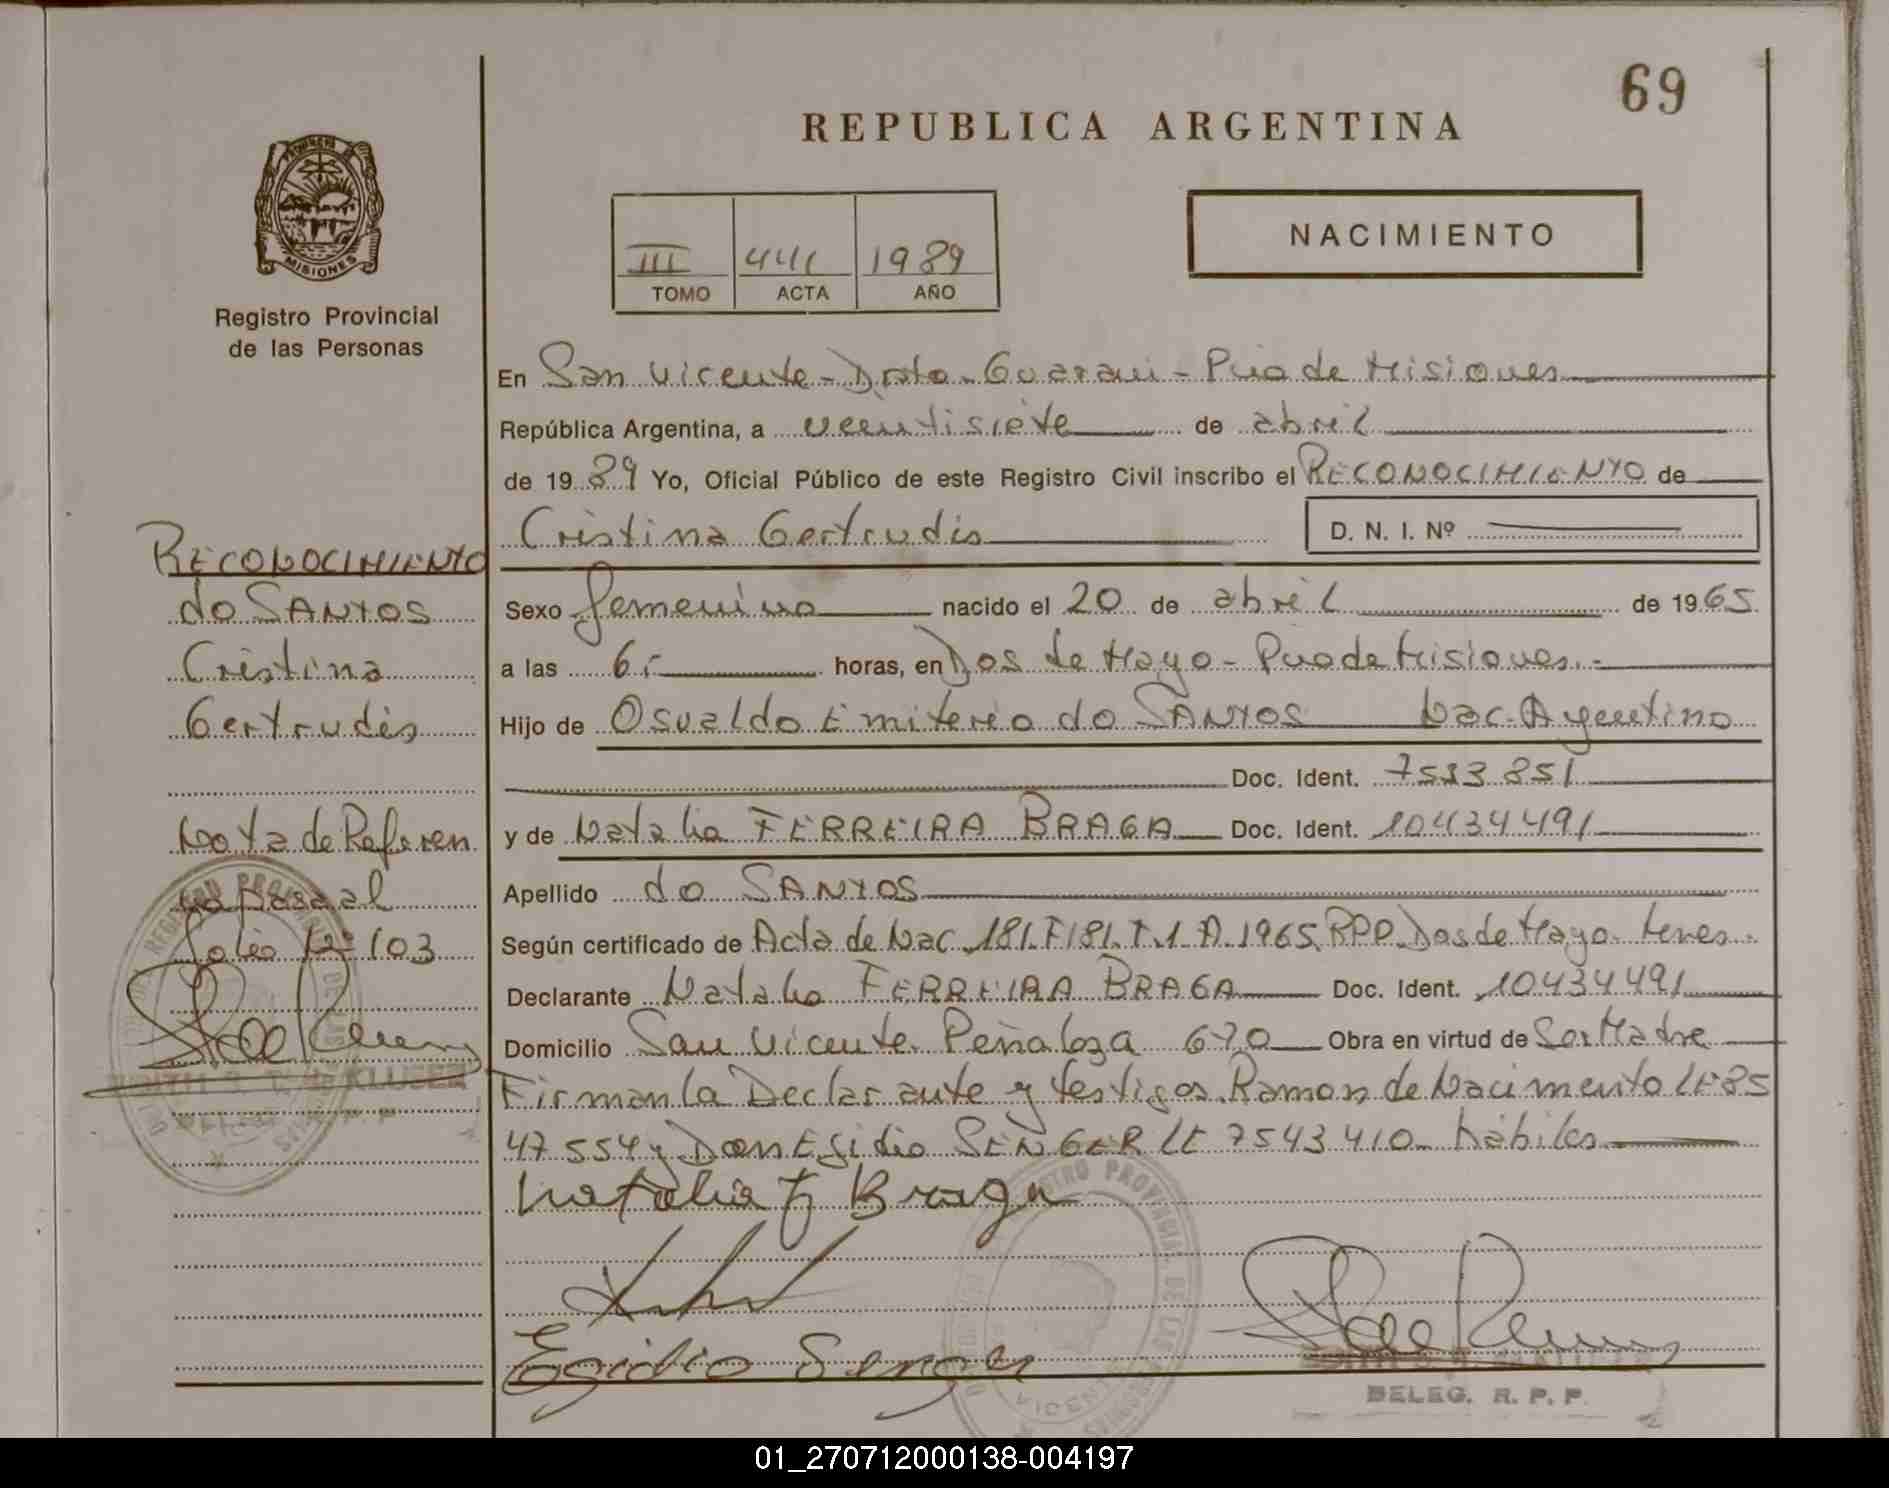 69
REPUBLICA ARGENTINA
PROVINCIA DE
MISIONES
Registro Provincial
de las Personas
III 441 1989
TOMO ACTA AÑO
NACIMIENTO
En San Vicente - Dpto. Guarani - Pcia de Misiones
República Argentina, a veintisiete de abril
de 1989 Yo, Oficial Público de este Registro Civil inscribo el RECONOCIMIENTO de
Cristina Gertrudis D. N. I. Nº
Sexo femenino nacido el 20 de abril de 1965
a las 6: horas, en Dos de Mayo - Pcia de Misiones.-
Hijo de Osvaldo Emiterio do SANTOS Nac. Argentino
Doc. Ident. 7533851
y de Natalia FERREIRA BRAGA Doc. Ident. 10434491
Apellido do SANTOS
Según certificado de Acta de Nac. 181.F181.T.1.A.1965. RPP. Dos de Mayo.
Declarante Natalia FERREIRA BRAGA Doc. Ident. 10434491
Domicilio San Vicente. Peñaloza 670 Obra en virtud de Ser Madre
Firman la Declarante y testigos. Ramon de Nacimento LE 85
47554 y Don Egidio SENGER LE 7543410 - hábiles
Natalia F Braga
Egidio Senger
BELEG. R. P. P.
RECONOCIMIENTO
do SANTOS
Cristina
Gertrudis
Nota de Referen
cia
folio Nº 103
01_270712000138-004197